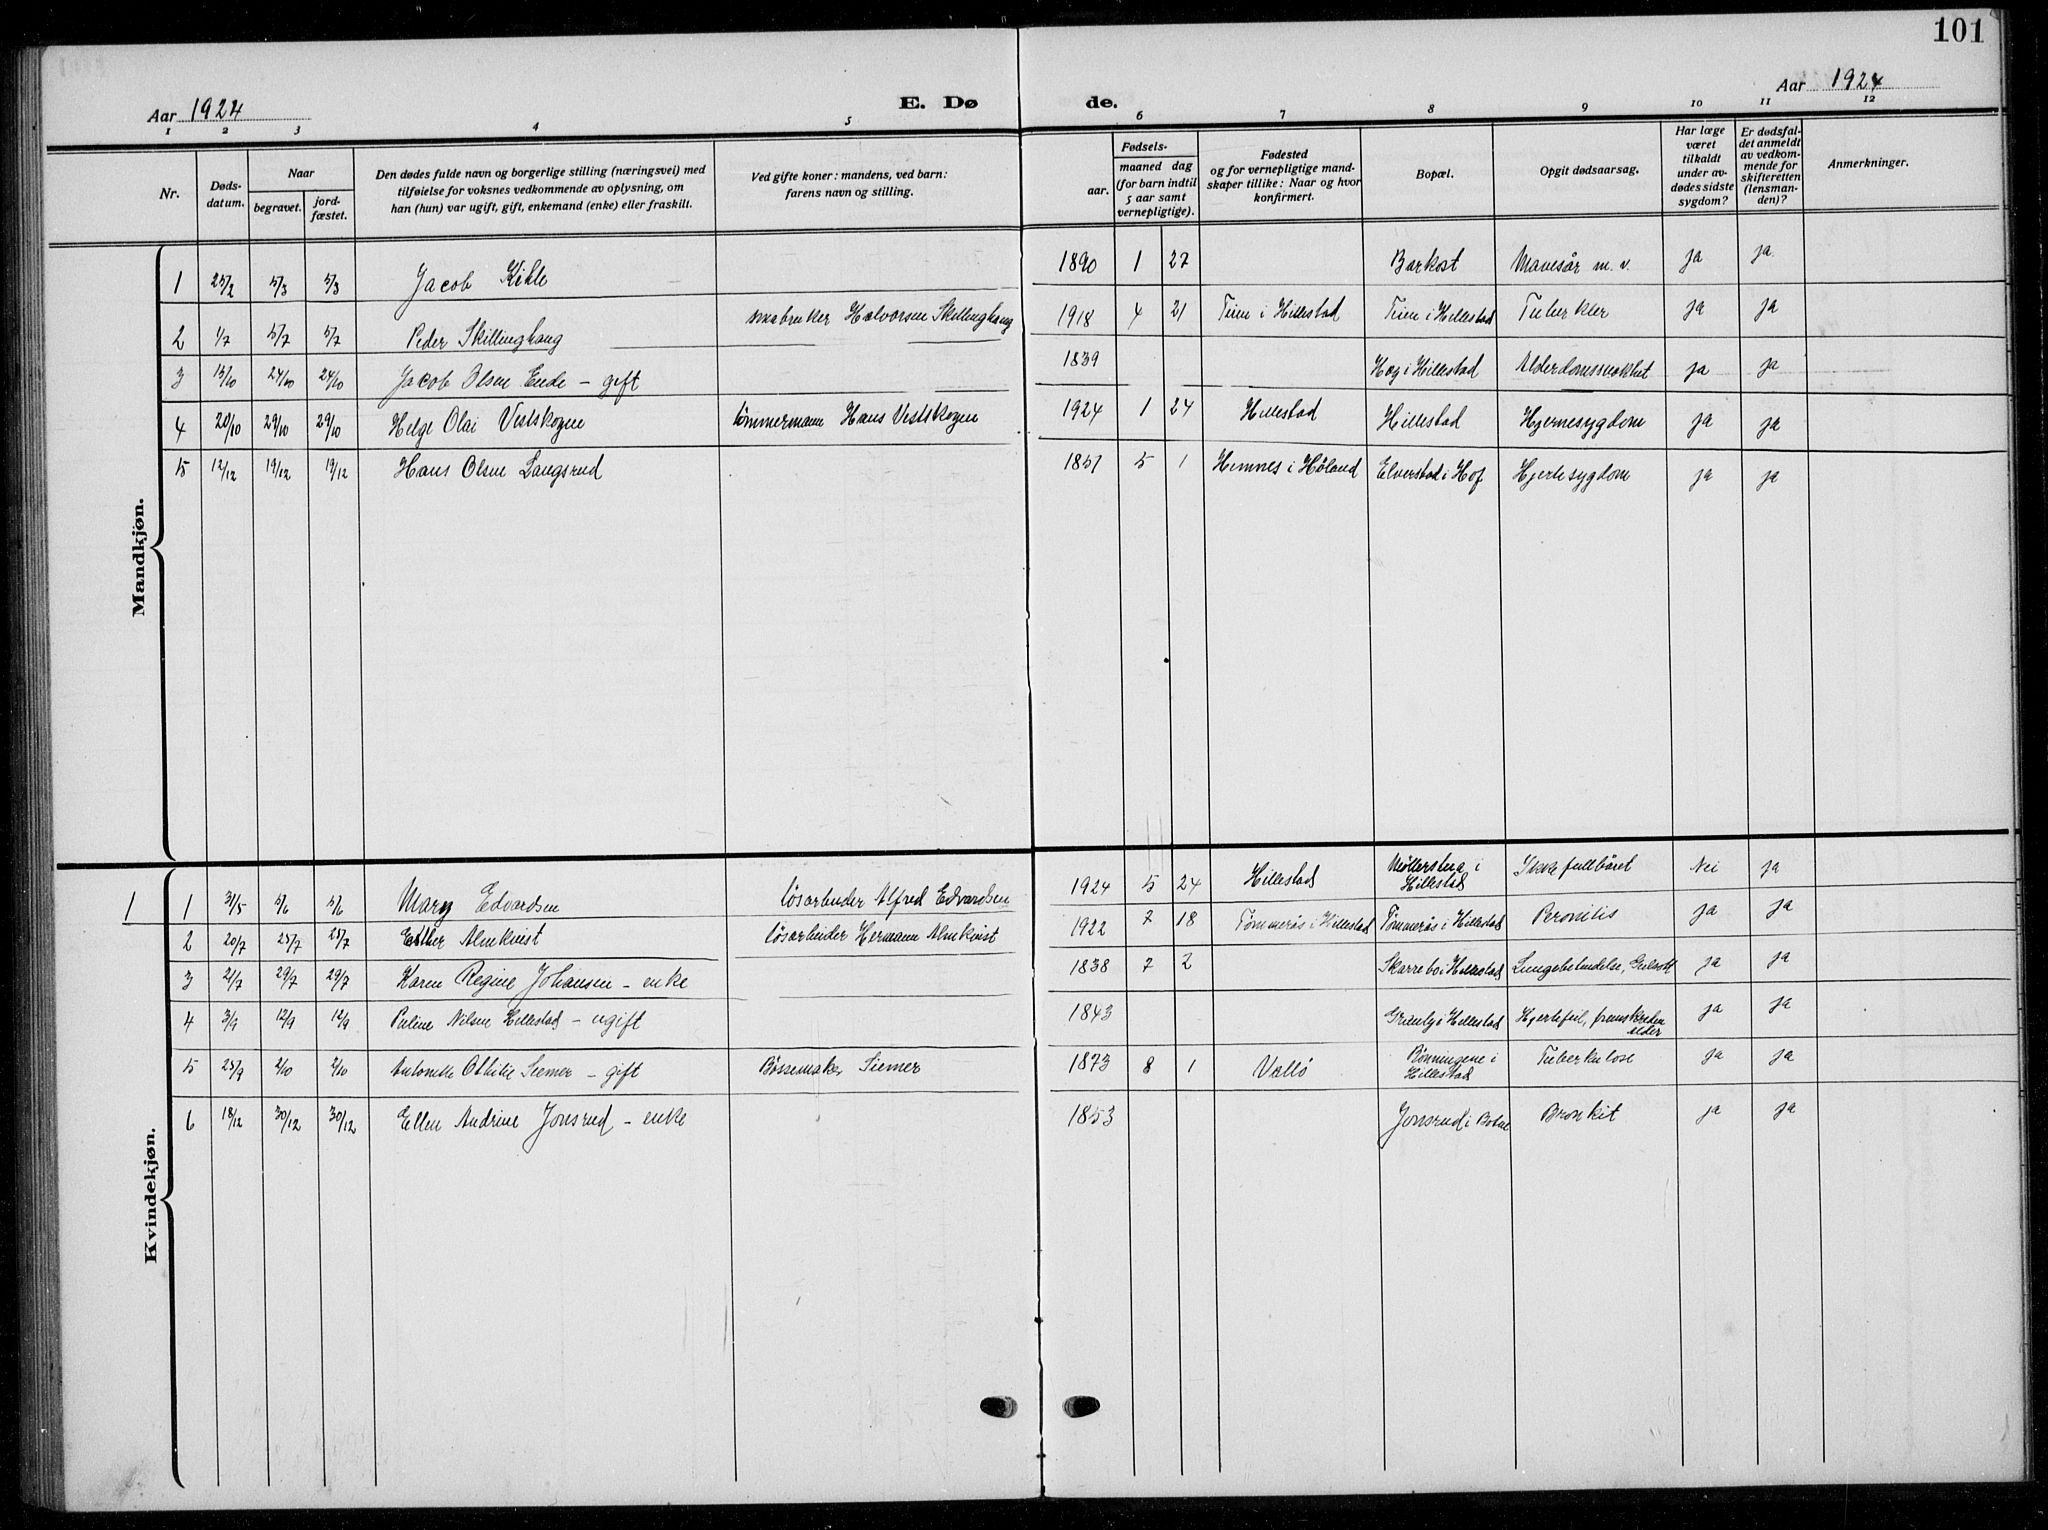 101
Aar 1924
E. Dø
de.
Aar 1924
1 2 3 4 5 6 7 8 9 10 11 12
Nr.
Døds-
datum.
Naar
begravet.
jord-
fæstet.
Den dødes fulde navn og borgerlige stilling (næringsvei) med
tilføielse for voksnes vedkommende av oplysning, om
han (hun) var ugift, gift, enkemand (enke) eller fraskilt.
Ved gifte koner: mandens, ved barn:
farens navn og stilling.
Fødsels-
aar.
maaned dag
(for barn indtil
5 aar samt
vernepligtige).
Fødested
og for vernepligtige mand-
skaper tillike: Naar og hvor
konfirmert.
Bopæl.
Opgit dødsaarsag.
Har læge
været
tilkaldt
under av-
dødes sidste
sygdom?
Er dødsfal-
det anmeldt
av vedkom-
mende for
skifteretten
(lensman-
den)?
Anmerkninger.
Mandkjøn.
1 25/2 5/3 5/3 Jacob Kihle 1890 1 27 Barkost Mavesår m. v. ja ja
2 1/7 5/7 5/7 Peder Skillinghaug småbruker Halvorsen Skillinghaug 1918 4 21 Teien i Hillestad Teien i Hillestad Tuberkler ja ja
3 15/10 24/10 24/10 Jacob Olsen Eide - gift 1839 Hag i Hillestad Alderdomssvakhet ja ja
4 20/10 29/10 29/10 Helge Olai Vestskogen tømmermann Hans Vestskogen 1924 1 24 Hillestad Hillestad Hjernesygdom ja ja
5 12/12 19/12 19/12 Hans Olsen Langsrud 1851 5 1 Hemnes i Høland Elverstad i Hof Hjertesygdom ja ja
Kvindekjøn.
1 1 31/5 5/6 5/6 Mary Edvardsen løsarbeider Alfred Edvardsen 1924 5 24 Hillestad Møllerstua i
Hillestad Ikke fullbåret Nei ja
2 20/7 25/7 25/7 Esther Almkvist løsarbeider Hermann Almkvist 1922 7 18 Tømmerås i Hillestad Tømmerås i Hillestad ja ja
3 21/7 29/7 29/7 Karen Regine Johansen - enke 1838 7 2 Skarrebo i Hillestad Lungebetendelse, Gulsott ja ja
4 3/9 12/9 12/9 Puline Nilsen Hillestad - ugift 1843 i Hillestad Hjertefeil, fremskreden
alder ja ja
5 25/9 2/10 2/10 Antonette Othilie Siemer - gift Bøssemaker Siemer 1873 8 1 Vallø Rønningene i
Hillestad Tuberkulose ja ja
6 18/12 30/12 30/12 Ellen Andrine Jonsrud - enke 1853 Jonsrud i Botne Bronkit ja ja